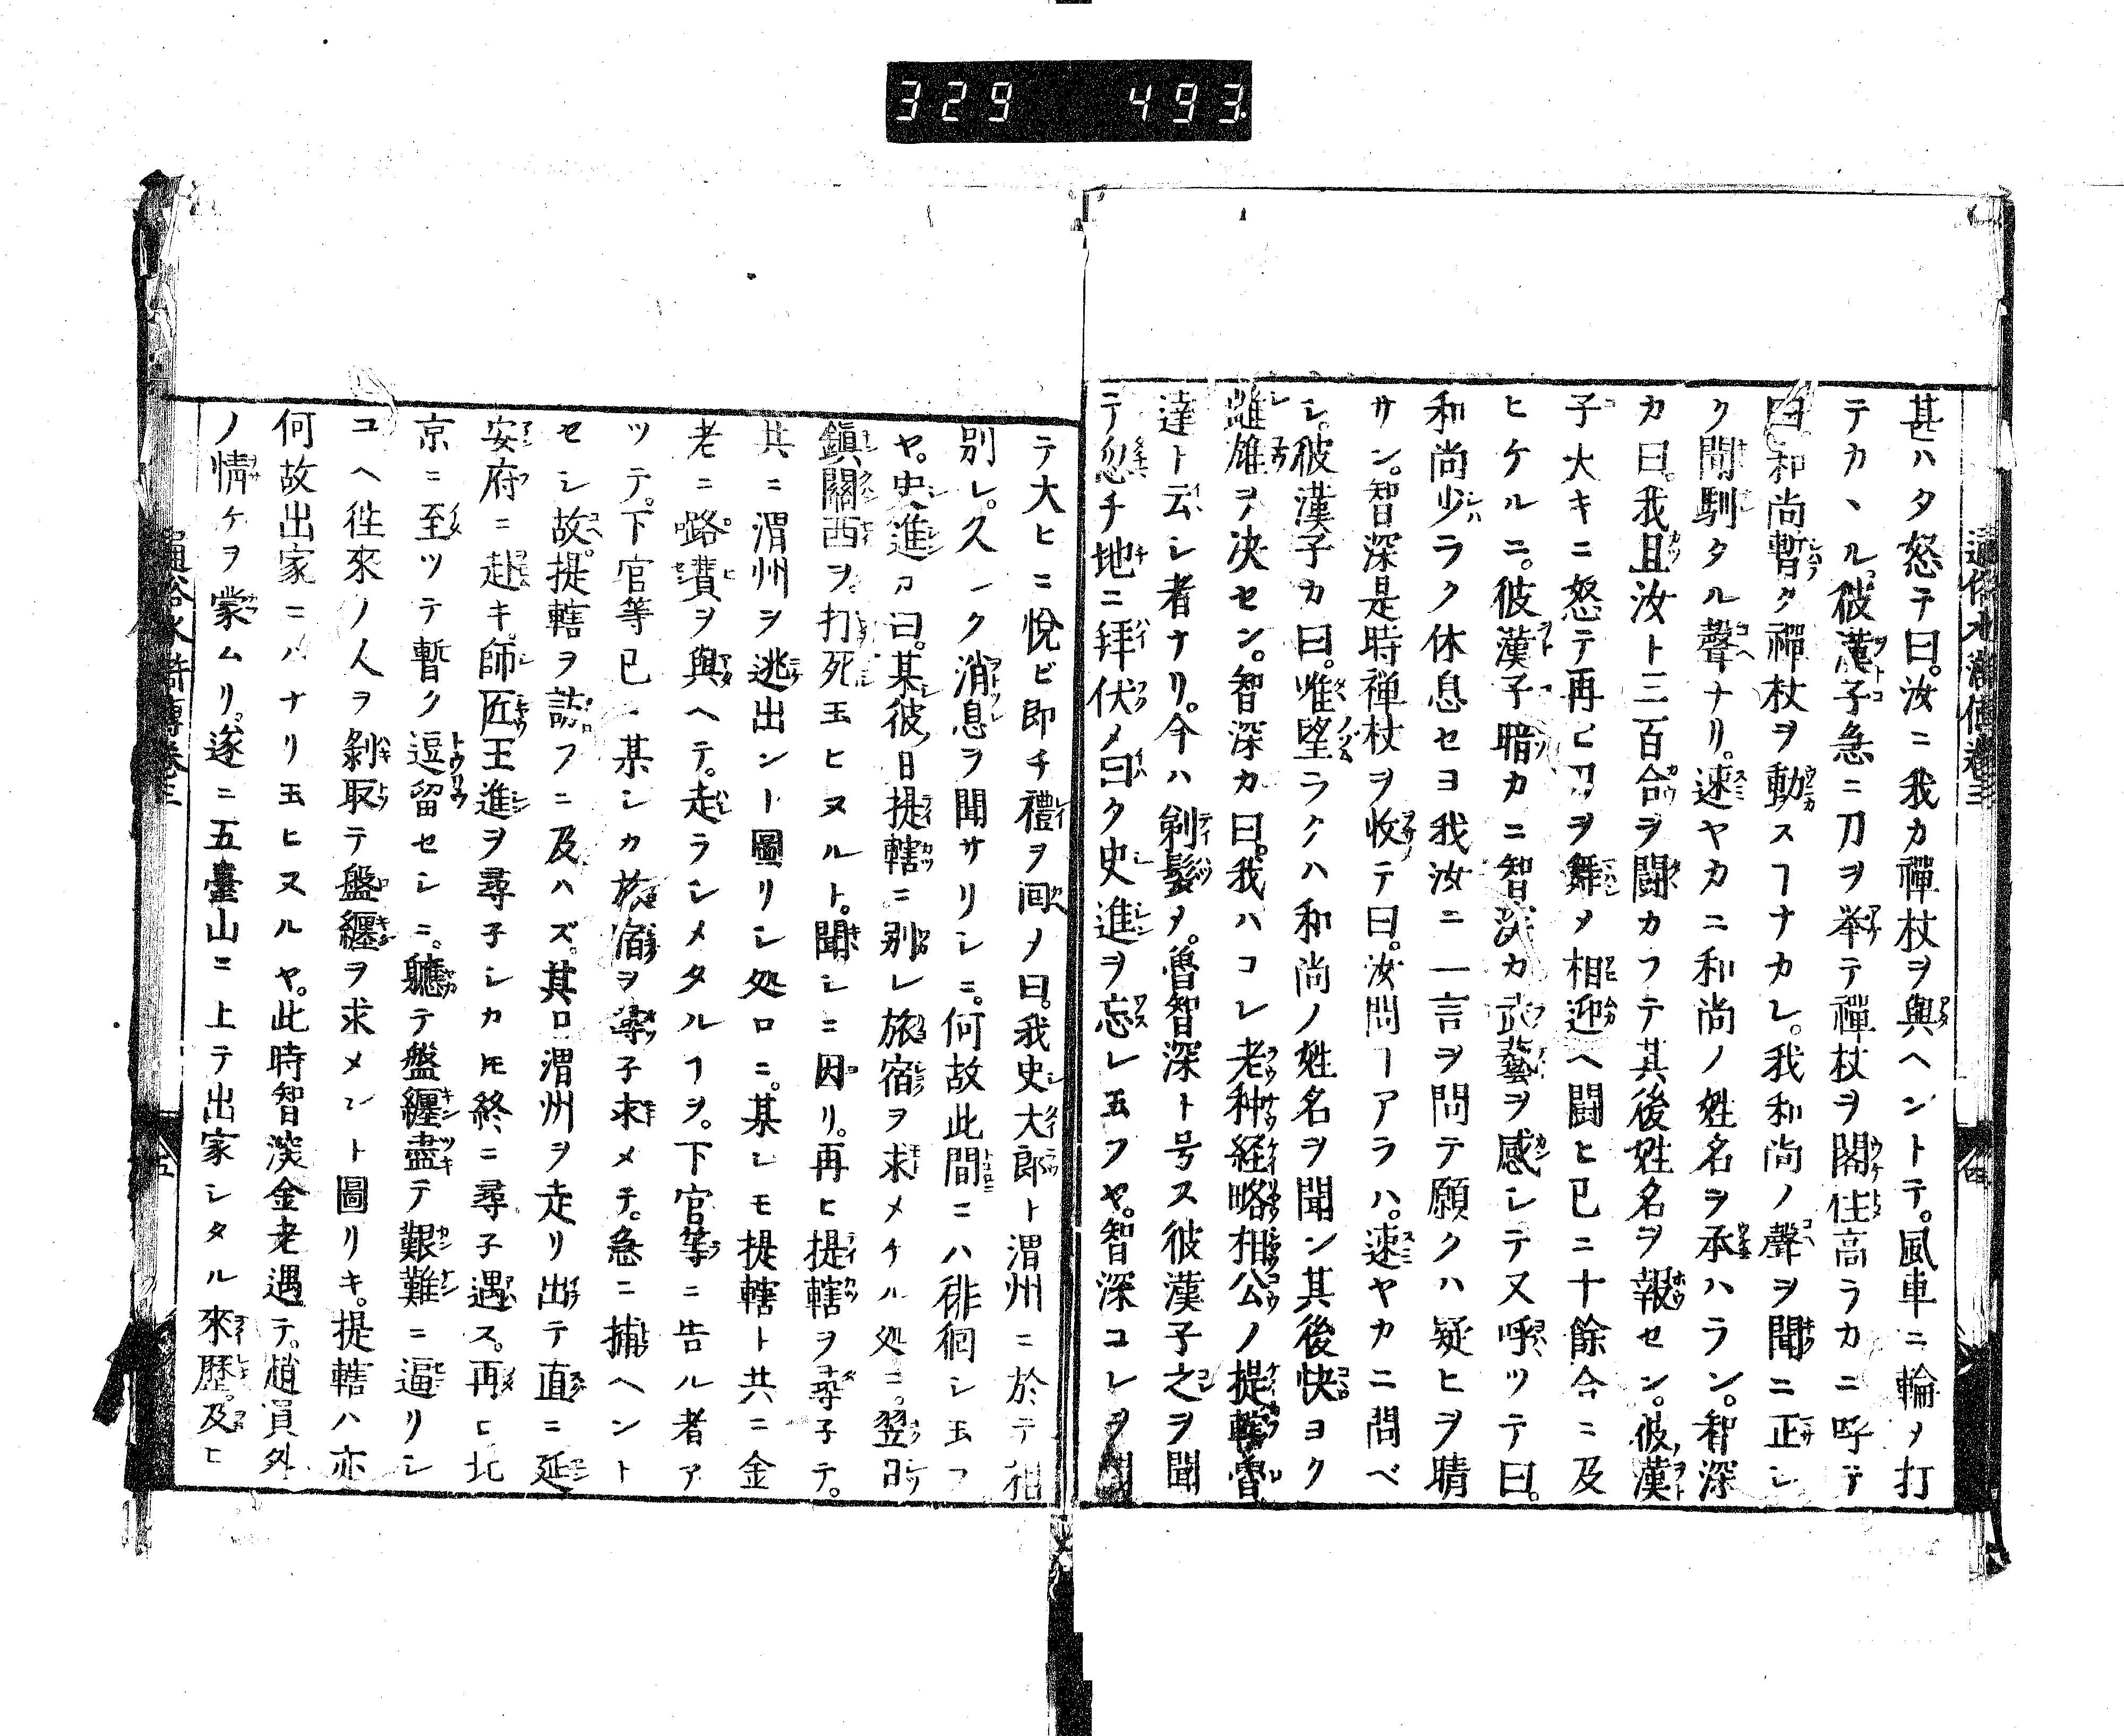 329 493
通俗水滸傳卷三
四
甚ハタ怒テ曰。汝ニ我カ禪杖ヲ與ヘントテ。風車ニ輪メ打
テカヽル。彼漢子急ニ刀ヲ挙テ禪杖ヲ閣住高ラカニ呼テ
曰。和尚暫ク禪杖ヲ動スヿナカレ。我和尚ノ聲ヲ聞ニ正シ
ク聞馴タル聲ナリ。速ヤカニ和尚ノ姓名ヲ承ハラン。智深
カ曰。我且汝ト三百合ヲ闘カフテ其後姓名ヲ報セン。彼漢
子大キニ怒テ再ビ刀ヲ舞メ相迎ヘ闘ヒ已ニ十餘合ニ及
ヒケルニ。彼漢子暗カニ智深カ武藝ヲ感シテ又呼ツテ曰。
和尚少ラク休息セヨ我汝ニ一言ヲ問テ願クハ疑ヒヲ晴
サン。智深是時禅杖ヲ收テ曰。汝問ヿアラハ。速ヤカニ問ベ
シ。彼漢子カ曰。唯望ラクハ和尚ノ姓名ヲ聞ン其後快ヨク
雌雄ヲ决セン。智深カ曰。我ハコレ老种経略相公ノ提轄魯
達ト云シ者ナリ。今ハ剃髮メ。魯智深ト号ス彼漢子之ヲ聞
テ忽チ地ニ拜伏メ曰ク史進ヲ忘レ玉フヤ。智深コレヲ聞
テ大ヒニ悅ビ即チ禮ヲ囘メ曰。我史大郎ト渭州ニ於テ相
別レ。久シク消息ヲ聞サリシニ。何故此間ニハ徘徊シ玉フ
ヤ。史進カ曰。某彼日提轄ニ別レ旅宿ヲ求メケル処ニ。翌日
鎭關西ヲ打死玉ヒヌルト。聞シニ因リ。再ヒ提轄ヲ尋子テ。
共ニ渭州ヲ逃出ント圖リシ処ロニ。某シモ提轄ト共ニ金
老ニ路費ヲ與ヘテ。走ラシメタルヿヲ。下官等ニ告ル者ア
ツテ。下官等已ニ某シカ旅宿ヲ尋子求メテ。急ニ捕ヘント
セシ故。提轄ヲ訪フニ及ハズ。其ロ渭州ヲ走リ出テ直ニ延
安府ニ赴キ。師匠王進ヲ尋子シカ𪜈終ニ尋子遇ス。再ヒ北
京ニ至ツテ暫ク逗留セシニ。軈テ盤纏盡テ艱難ニ逼リシ
ユヘ徃來ノ人ヲ剝取テ盤纏ヲ求メント圖リキ。提轄ハ亦
何故出家ニハナリ玉ヒヌルヤ。此時智深金老遇テ。趙員外
ノ情ケヲ蒙ムリ。遂ニ五臺山ニ上テ出家シタル來歷。及ヒ
通俗水滸傳卷三
五